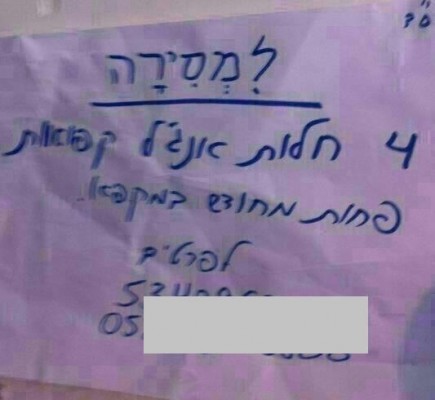 לִמְסִירָה
4 חלות אנג'ל קפואות
פחות מחודש במקפא.
לפרטים
05